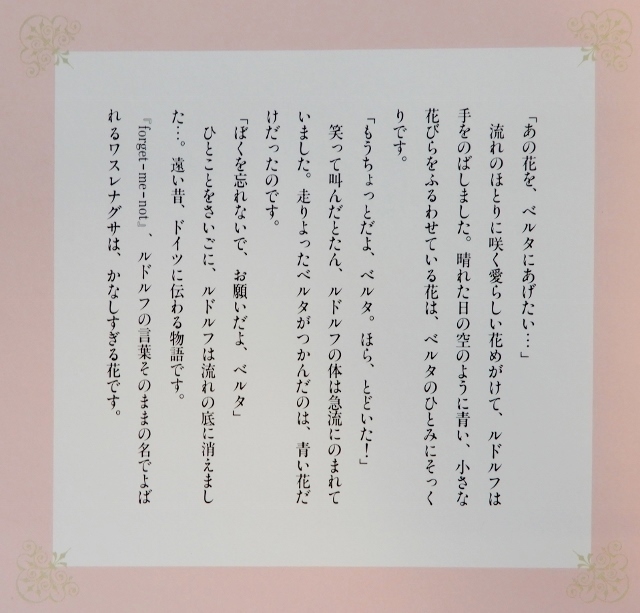 「あの花を、ベルタにあげたい…」
流れのほとりに咲く愛らしい花めがけて、ルドルフは
手をのばしました。晴れた日の空のように青い、小さな
花びらをふるわせている花は、ベルタのひとみにそっく
りです。
「もうちょっとだよ、ベルタ。ほら、とどいた!」
笑って叫んだとたん、ルドルフの体は急流にのまれて
いました。走りよったベルタがつかんだのは、青い花だ
けだったのです。
「ぼくを忘れないで、お願いだよ、ベルタ」
ひとことをさいごに、ルドルフは流れの底に消えまし
た…。遠い昔、ドイツに伝わる物語です。
『forget-me-not』、ルドルフの言葉そのままの名でよば
れるワスレナグサは、かなしすぎる花です。